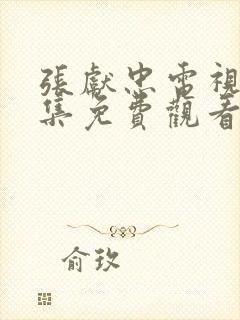 張獻忠電視
集免費觀看
俞玫